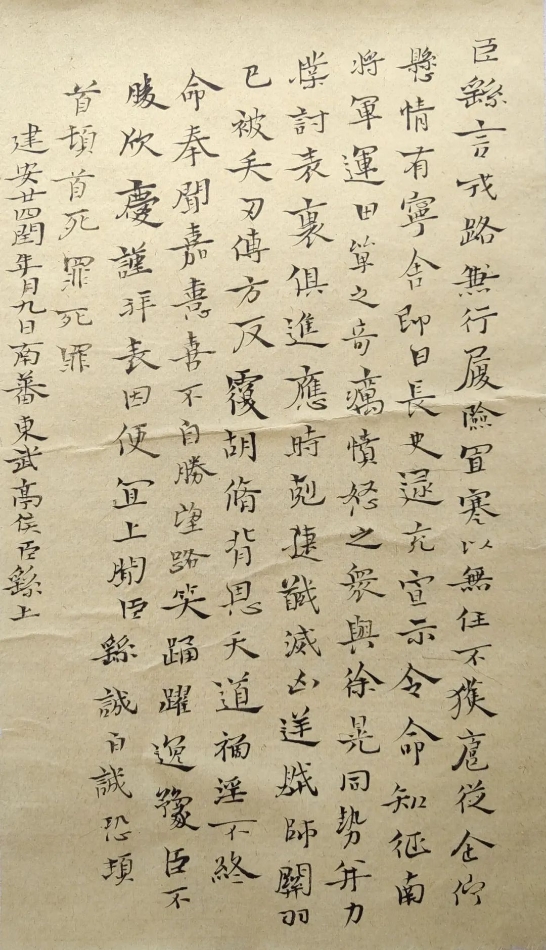 臣繇言戎路兼行履險冒寒以無任不獲扈從企佇
懸情有寧舍即日長史逯充宣示令命知征南
將軍運田單之奇厲憤怒之衆與徐晃同勢并力
撲討表裏俱進應時剋捷馘滅凶逆賊帥關羽
已被矢刃傅方反覆胡脩背恩天道禍淫不終
命奉聞嘉憙喜不自勝望路笑踊躍逸豫臣不
勝欣慶謹拜表因便宜上聞臣繇誠誠恐頓
首頓首死罪死罪
建安廿四閏年月九日南蕃東武亭侯臣繇上